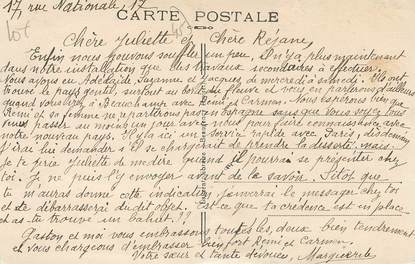 17 rue Nationale, 17
CARTE POSTALE
Chère Juliette et Chère Réjane,
Enfin nous pouvons souffler un peu, il n'y a plus maintenant
dans notre installation que des travaux secondaires à effectuer.
Nous avons eu Adelaïde, Suzanne et Jacques de mercredi à samedi. Ils ont
trouvé le pays gentil, surtout au bord du fleuve et vous en parleront d'ailleurs
quand vous irez à Beauchamp avec Rémi et Carmen. Nous espérons bien que
Rémi et sa femme ne repartiront pas en sans que vous veniez tous
passer au moins un jour avec nous pour faire connaissance avec
notre nouveau pays. Il y a ici un service rapide avec Paris,
j'irai lui demander s'il se chargerait de prendre la desserte, mais
je te prie Juliette de me dire quand il pourrait se présenter chez
toi. Je ne puis l'y envoyer avant de la savoir. Sitôt que
tu m'auras donné cette indication, j'enverrai le messager chez toi
et te débarrasserai dudit objet. Est-ce que ta crédence est en place
et as-tu trouvé un bahut ??
Gaston et moi vous embrassons toutes les deux bien tendrement
et vous chargeons d'embrasser bien fort Rémi et Carmen.
Votre sœur et tante dévouée, Marguerite